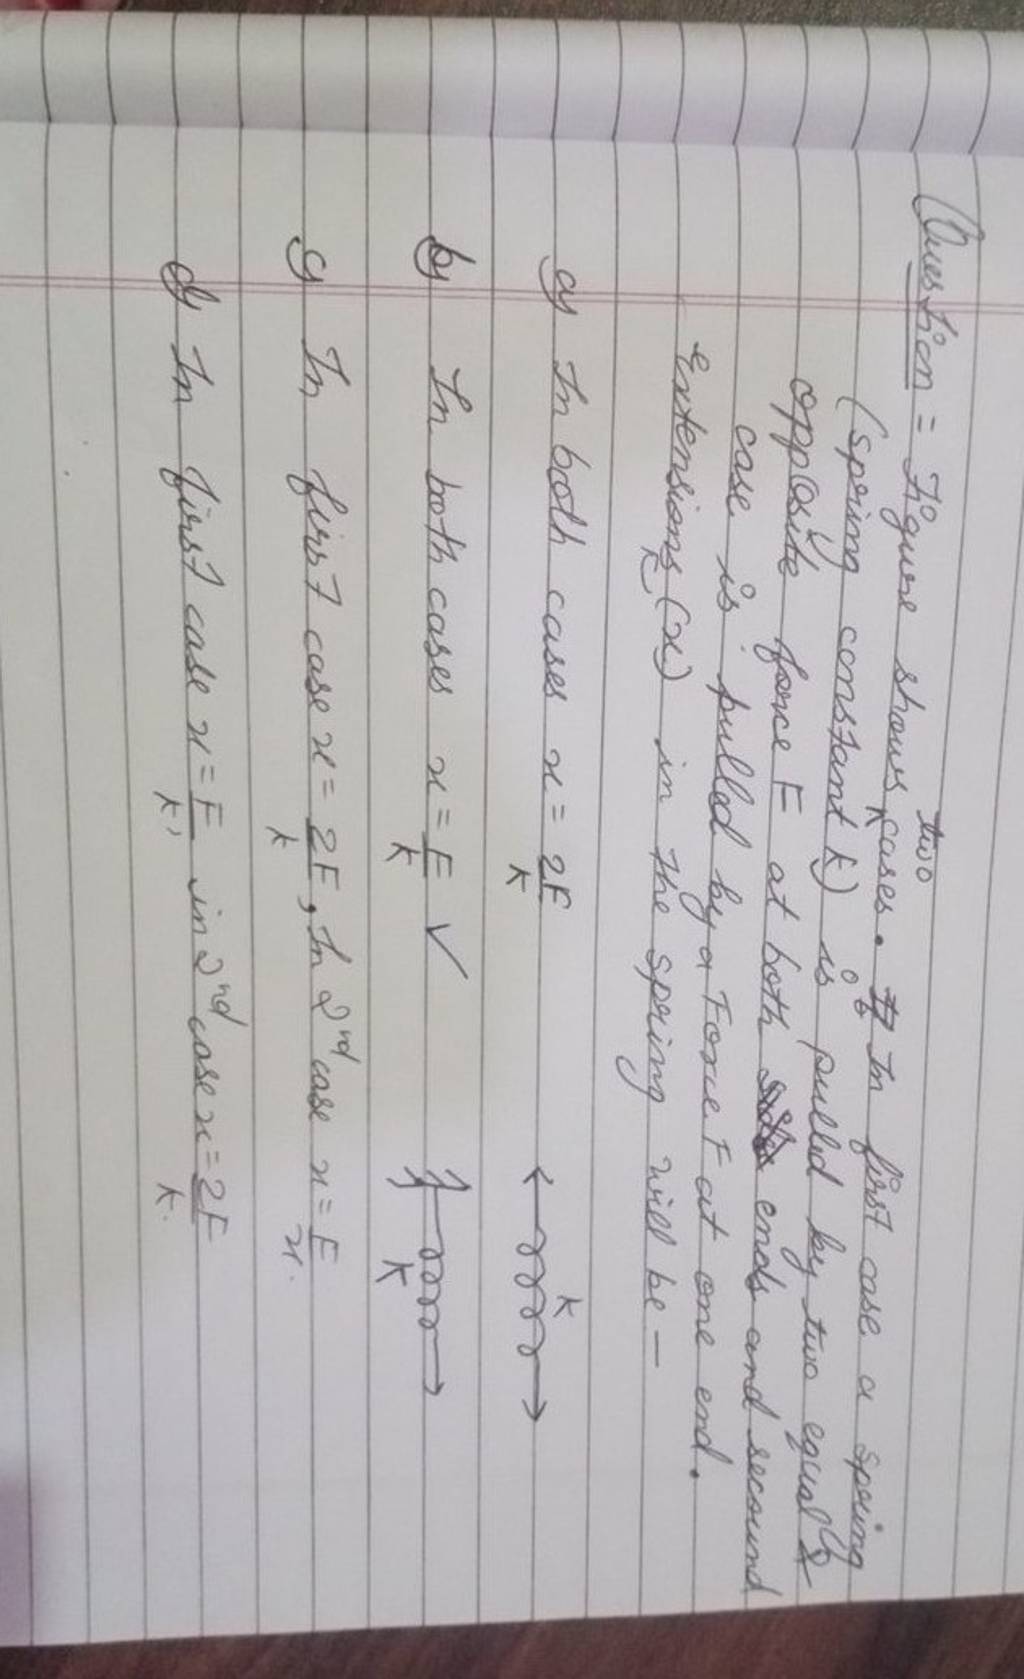 Question = Figure shows two cases. In first case a spring
(spring constant k) is pulled by two equal &
opposite force F at both ends and secound
case is pulled by a Force F at one end.
extensions (x) in the spring will be –
a) In both cases x = 2F/k
k
b) In both cases x = F/k ✓
k
c) In first case x = 2F/k, In 2nd case x = F/x.
d) In first case x = F/k, in 2nd case x = 2F/k.